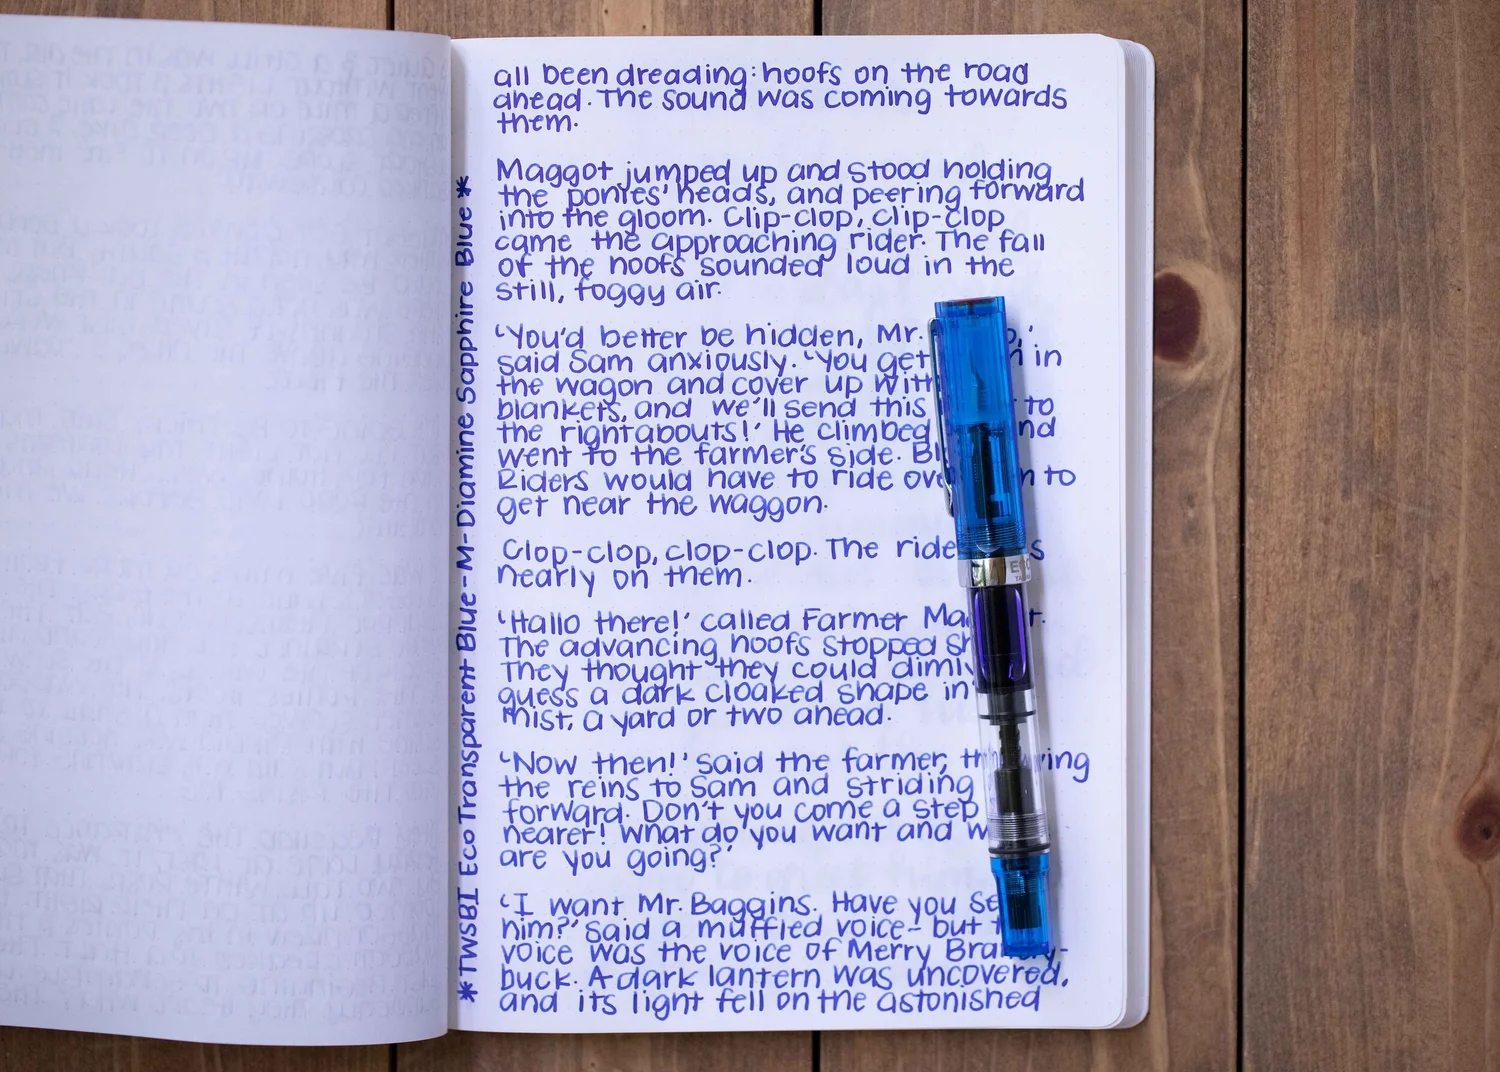 all been dreading: hoofs on the road
ahead. The sound was coming towards
them.
Maggot jumped up and stood holding
the ponies' heads, and peering forward
into the gloom. Clip-clop, clip-clop
came the approaching rider. The fall
of the hoofs sounded loud in the
still, foggy air.
'You'd better be hidden, Mr.
said Sam anxiously. 'You get in
the wagon and cover up with
blankets, and we'll send this to
the rightabouts!' He climbed
went to the farmer's side.
Riders would have to ride to
get near the waggon.
Clop-clop, clop-clop. The
nearly on them.
'Hallo there!' called Farmer
The advancing hoofs stopped
They thought they could dimly
guess a dark cloaked shape in
mist, a yard or two ahead.
'Now then!' said the farmer,
the reins to Sam and striding
forward. Don't you come a step
nearer! What do you want and
are you going?'
'I want Mr. Baggins. Have you
him?' said a muffled voice - but
voice was the voice of Merry
buck. A dark lantern was uncovered,
and its light fell on the astonished
*TWSBI Eco Transparent Blue - M - Diamine Sapphire Blue*